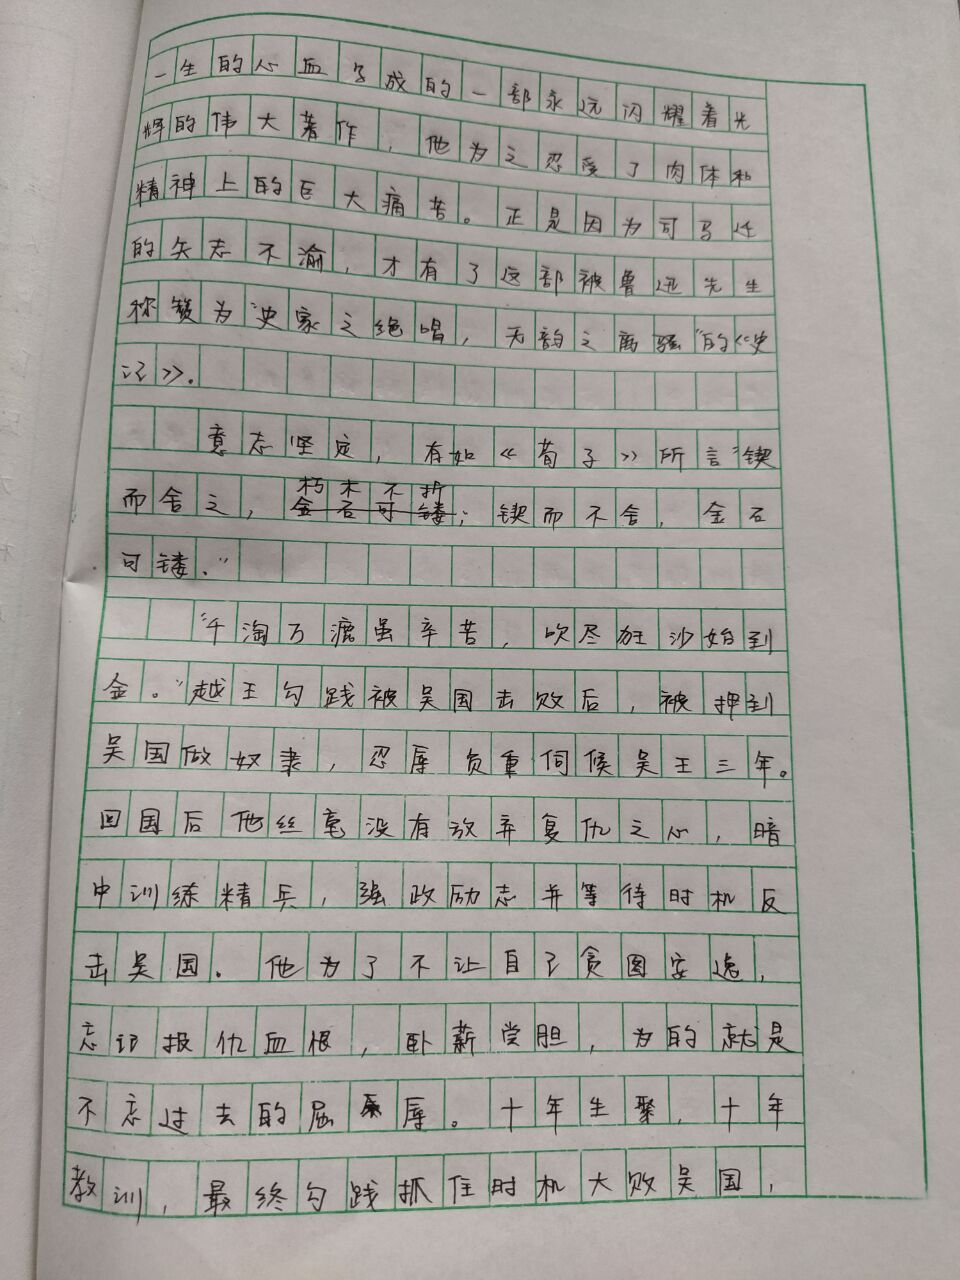 一生的心血写成的一部永远闪耀着光
辉的伟大著作，他为之忍受了肉体和
精神上的巨大痛苦。正是因为司马迁
的矢志不渝，才有了这部被鲁迅先生
称赞为“史家之绝唱，无韵之离骚”的《史
记》.
意志坚定，有如《荀子》所言“锲
而舍之，朽木不折；锲而不舍，金石
可镂.”
“千淘万漉虽辛苦，吹尽狂沙始到
金。”越王勾践被吴国击败后，被押到
吴国做奴隶，忍辱负重伺候吴王三年。
回国后他丝毫没有放弃复仇之心，暗
中训练精兵，强政励志并等待时机反
击吴国.他为了不让自己贪图安逸，
忘记报仇血恨，卧薪尝胆，为的就是
不忘过去的屈辱。十年生聚，十年
教训，最终勾践抓住时机大败吴国，